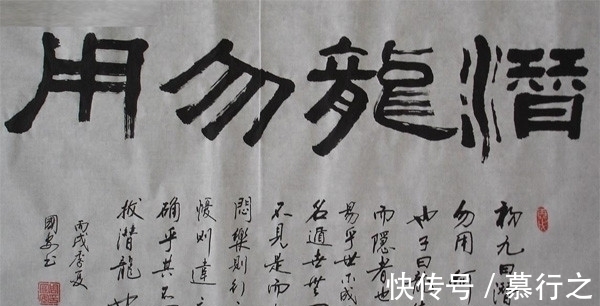 潛龍勿用
初九曰潛
勿用
也子曰
而隱者也
易乎世不成
名遁世無
不見是而
悶樂則行
憂則違之
確乎其不
拔潛龍也
丙戌季夏
國安書
快传号 / 慕行之